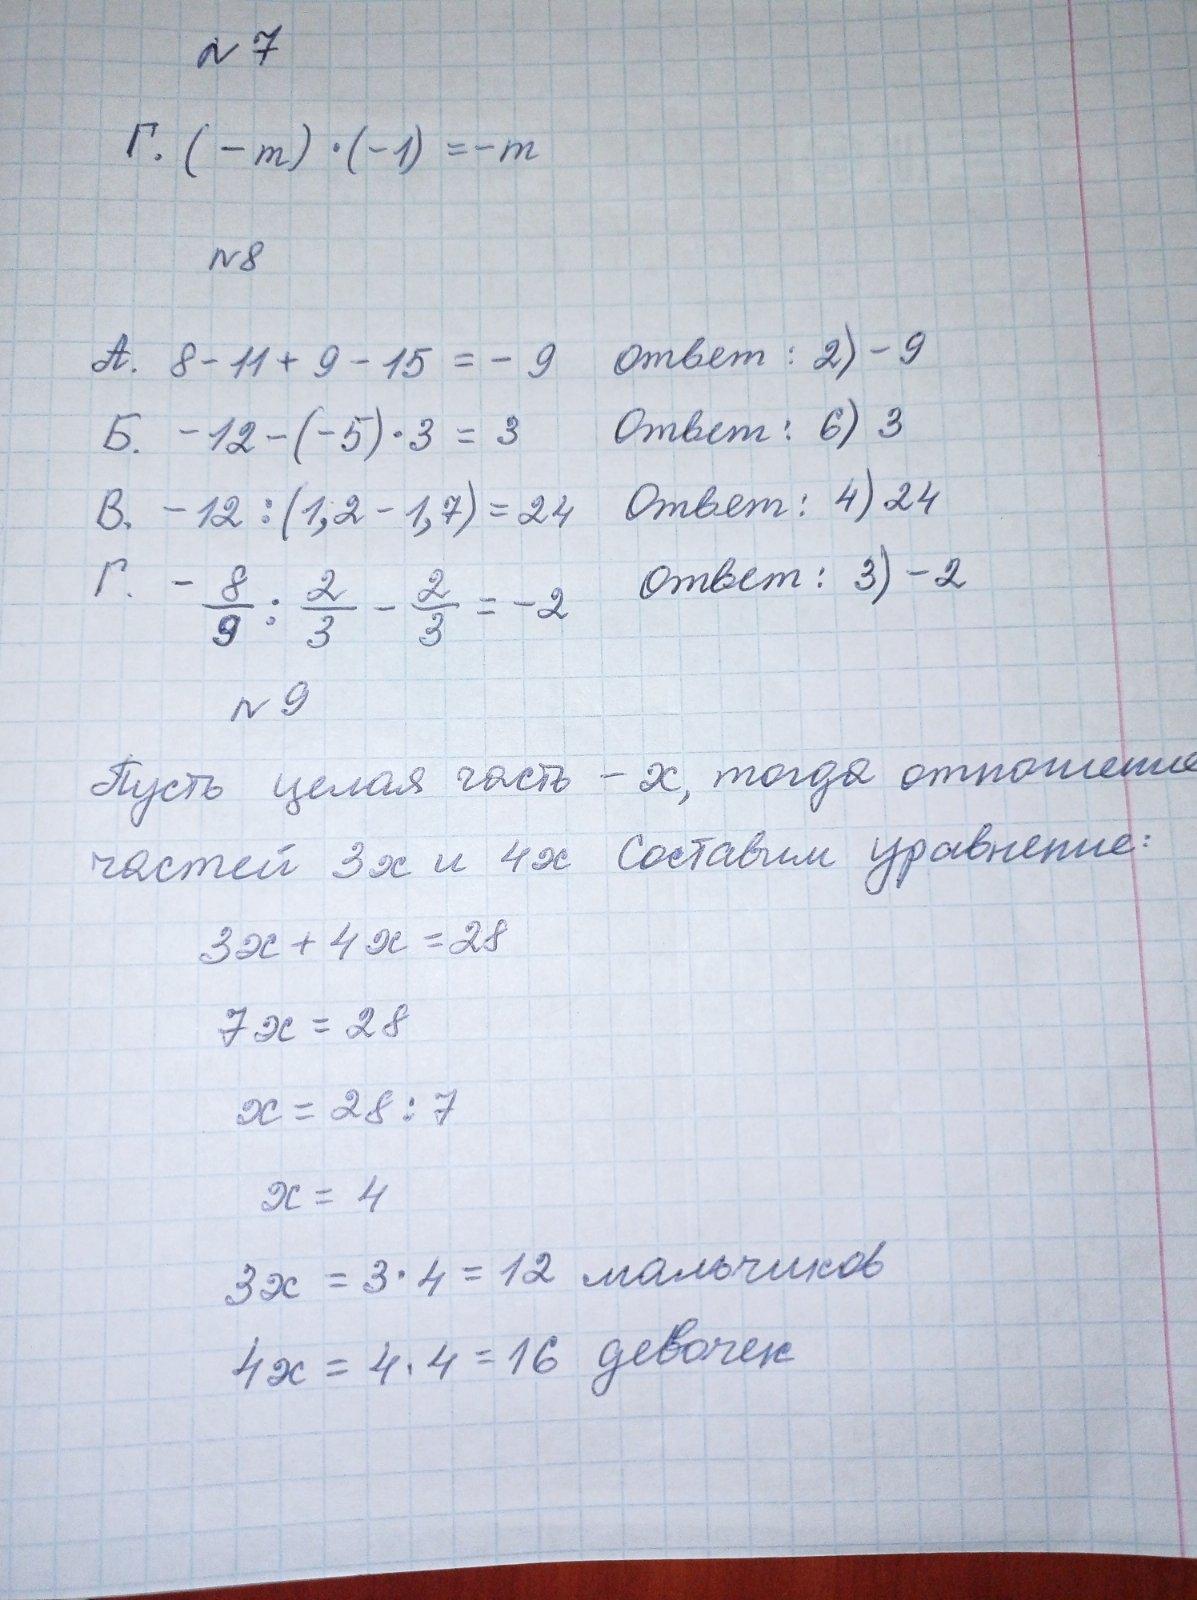 №7
Г. (-m)·(-1) = -m
№8
А. 8-11+9-15 = -9 ответ: 2) -9
Б. -12-(-5)·3 = 3 Ответ: 6) 3
В. -12:(1,2-1,7) = 24 Ответ: 4) 24
Г. -8/9 : 2/3 - 2/3 = -2 ответ: 3) -2
№9
Пусть целая часть - х, тогда отношение
частей 3х и 4х Составим уравнение:
3х+4х=28
7х=28
х=28:7
х=4
3х = 3·4 = 12 мальчиков
4х = 4·4 = 16 девочек